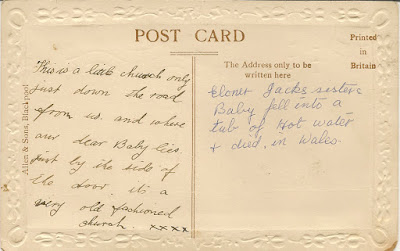 POST CARD
Printed
in
Britain
The Address only to be
written here
Allen & Sons, Blackpool
This is a little church only
just down the road
from us. and where
our dear Baby lies
just by the side of
the door. it's a
very old fashioned
church. xxxx
Eloner Jacks sister's
Baby fell into a
tub of Hot water
+ died, in Wales.